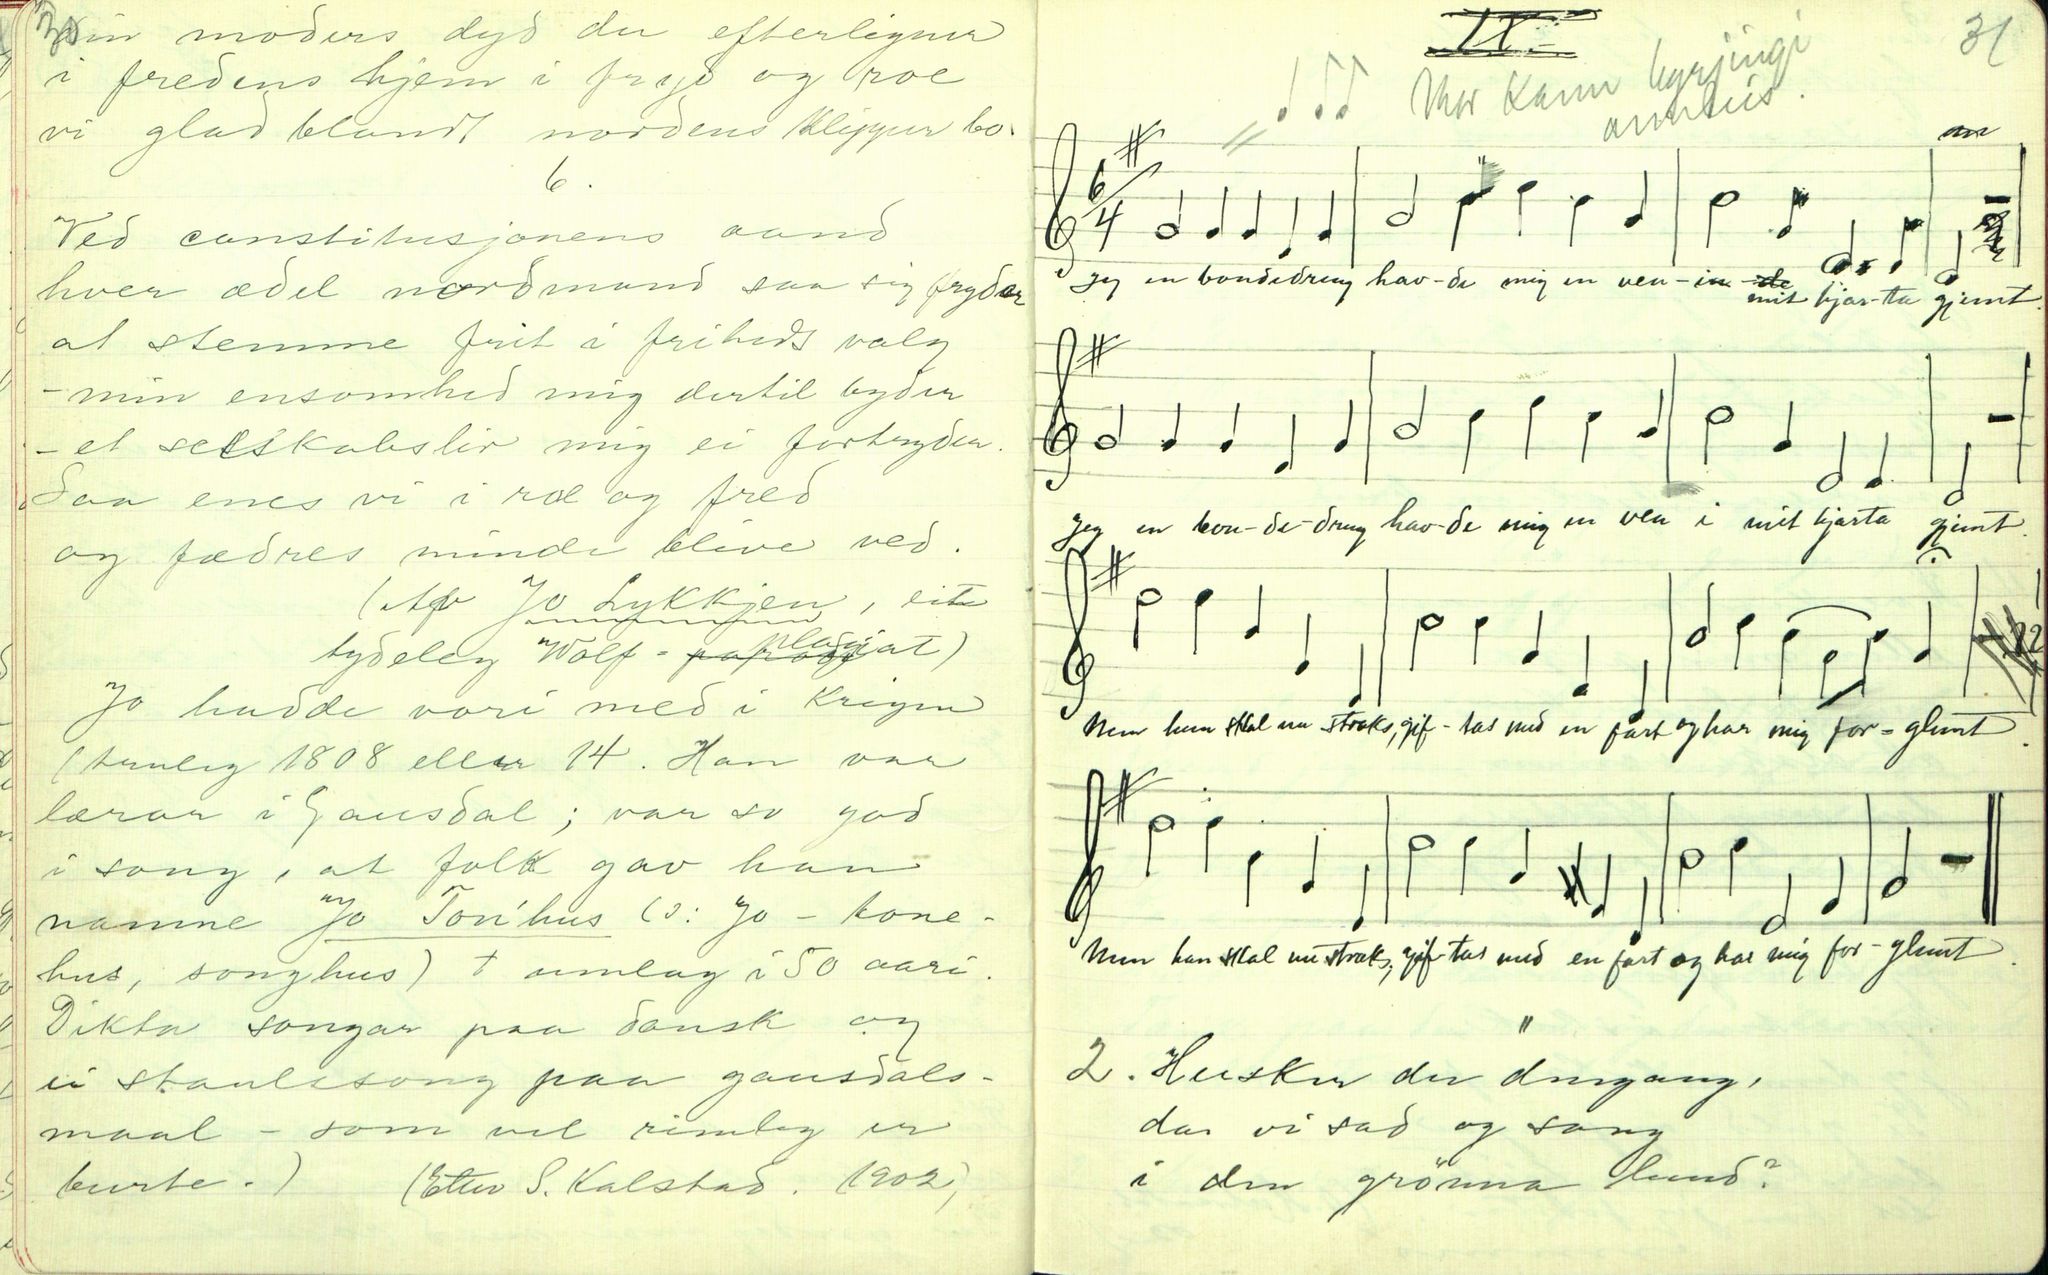 din moders dyd du efterligner
i fredens hjem i fryd og roe
vi glad blandt nordens klipper bo.
6.
Ved constitusjonens aand
hver ædel nordmand saa sig fryder
at stemme frit i friheds valg
- min ensomhed mig dertil byder
- et selskabsliv mig ei fortryder.
Saa enes vi i roe og fred
og fædres minde blive ved.
(Av Jo Lykkjen, eit
tydeleg Wolf - plagiat)
Jo hadde vori med i krigen
(truleg 1808 eller 14. Han var
lærar i Gausdal; var so god
i song, at folk gav han
namne "Jo Ton'hus (ɔ: Jo - tone-
hus, songhus) † umlag i 50 aari.
Dikta songar paa dansk og
ei staulesong paa gausdals-
maal - som vel rimleg er
burte.) (Etter S. Kalstad. 1902)
31
IX.
Mor Kann byrjingi
annleis.
6/4
Jeg en bondedreng hav-de mig en ven - i
mit hjar-ta gjemt.
Jeg en bon-de-dreng hav-de mig en ven i mit hjarta gjemt.
Men hun skal nu straks, gif-tas med en fart og har mig for-glemt.
Men hun skal nu straks, gif-tas med en fart og har mig for-glemt.
"
2. Husker du dengang,
da vi sad og sang
i den grönna lund?